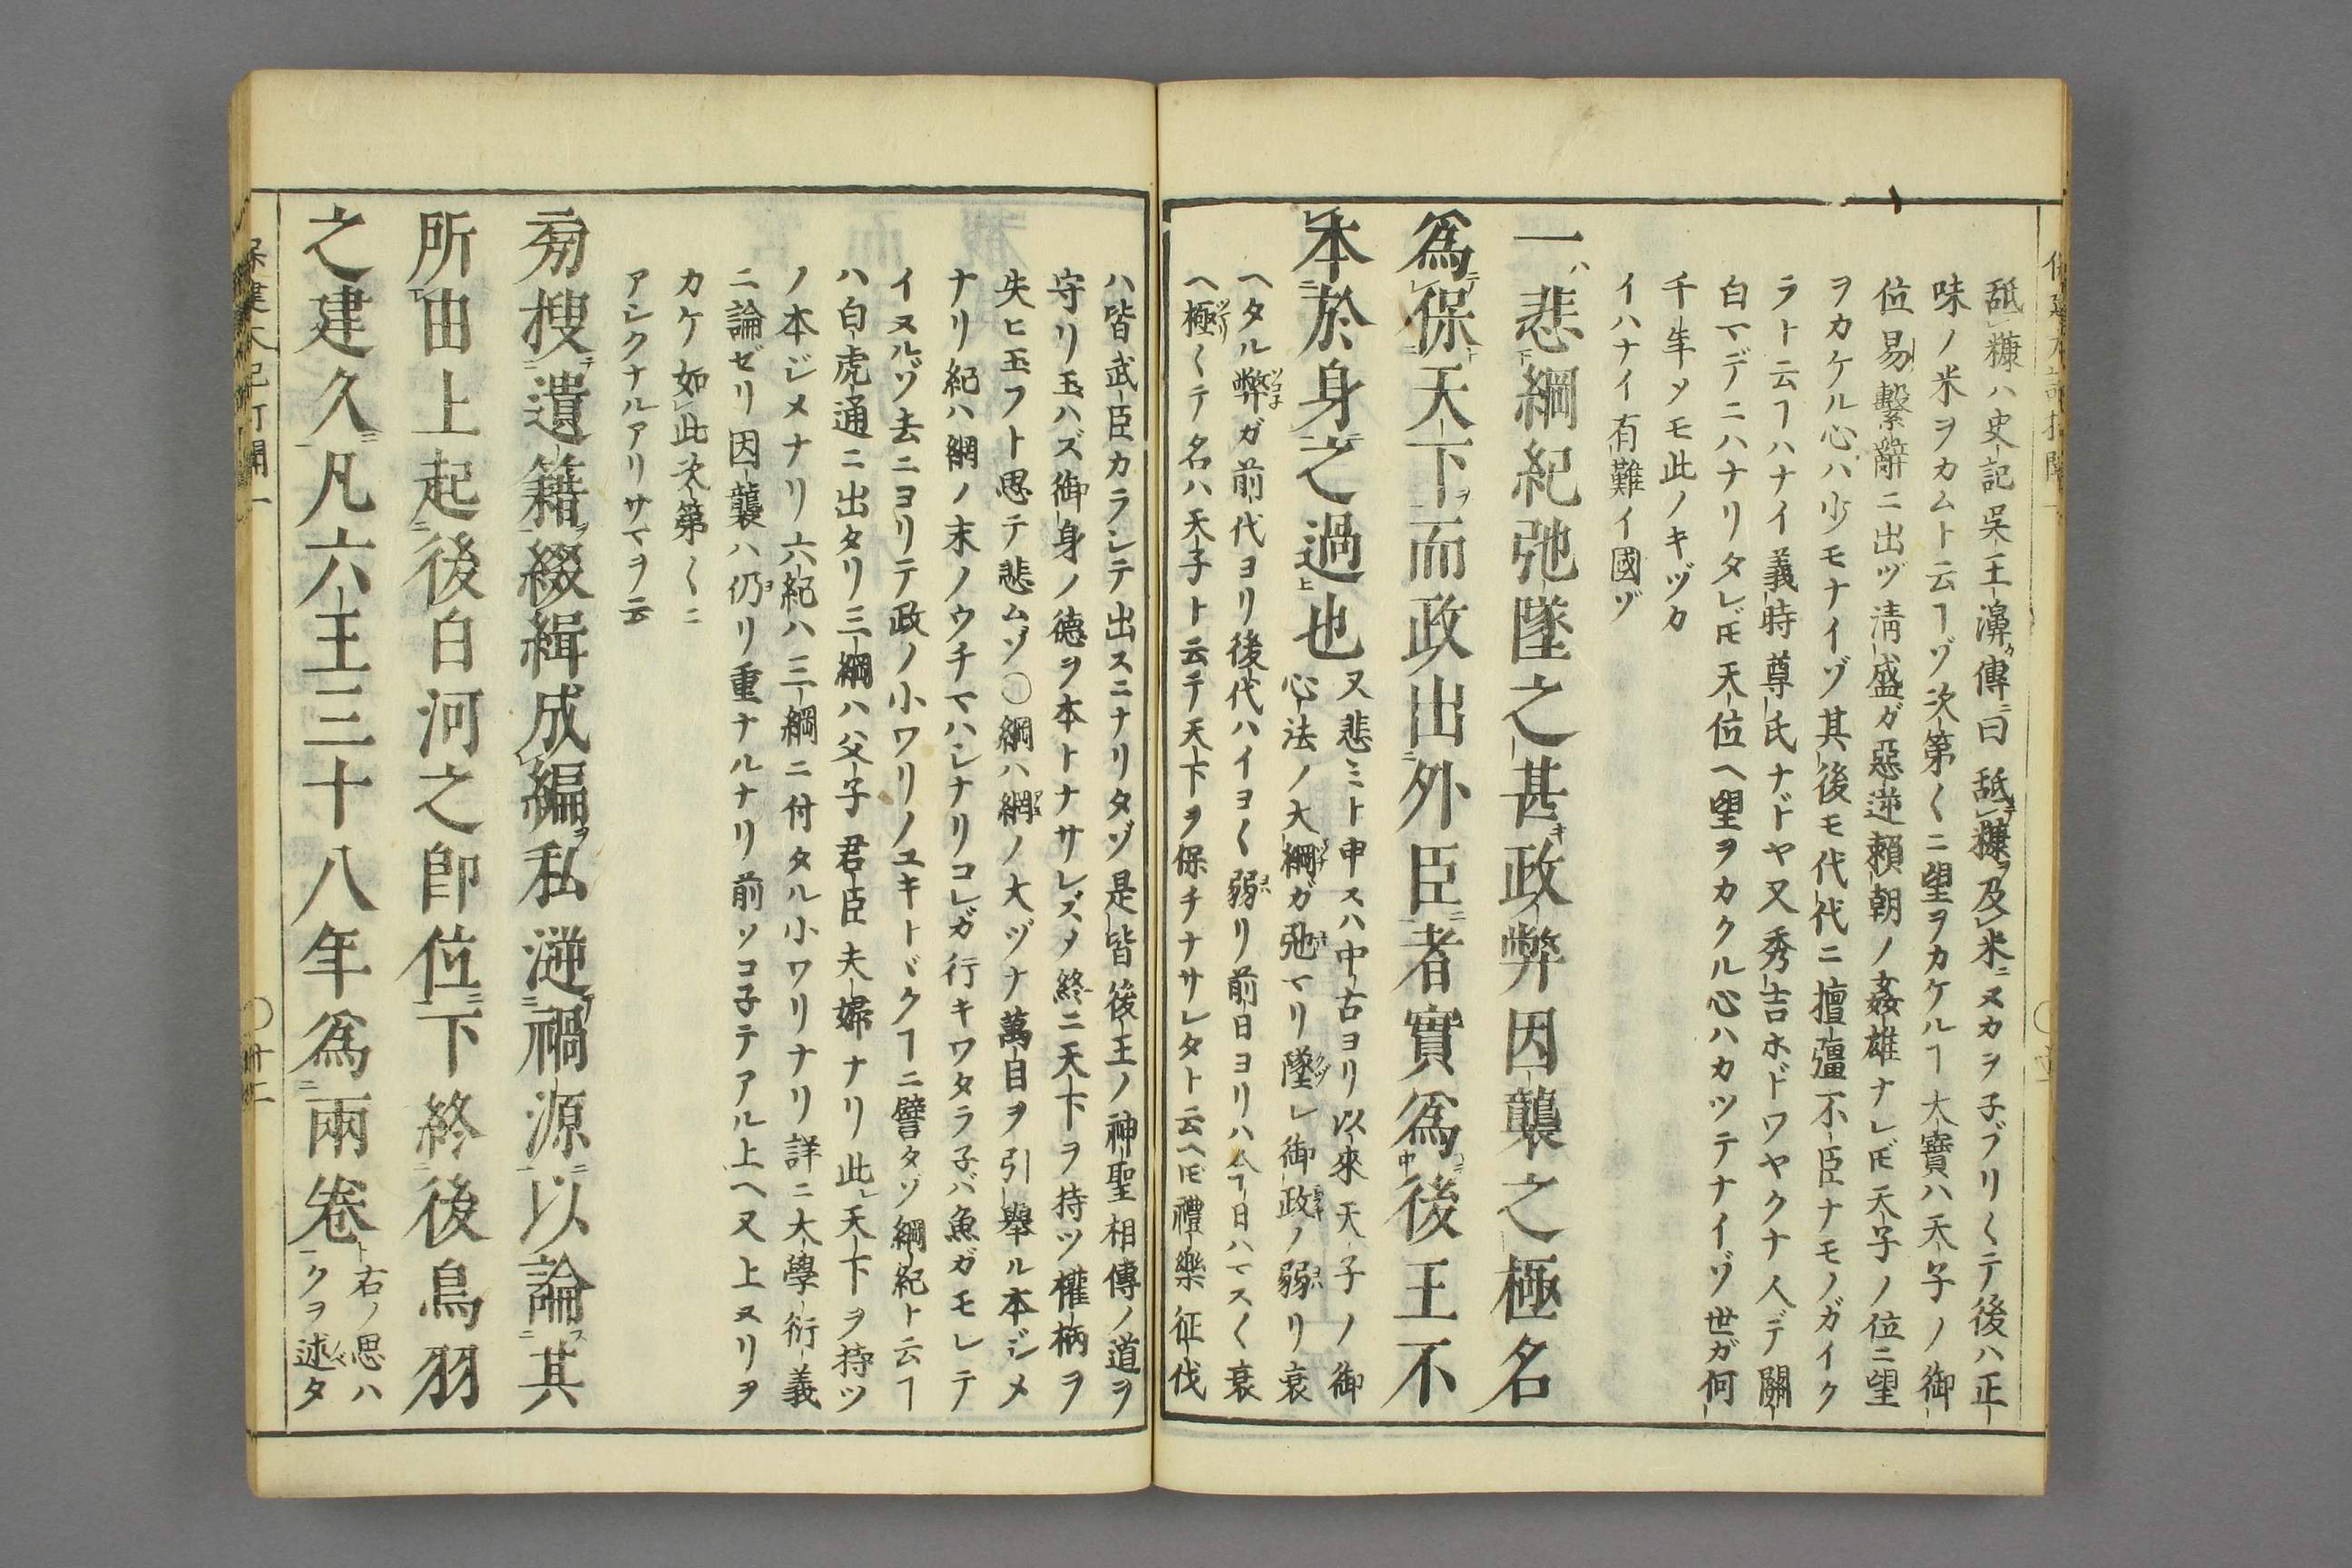 舐糠ハ史記吳王濞傳ニ曰舐糠ヲ及米ニヌカヲ子ブリ〱テ後ハ正
味ノ米ヲカムト云ヿゾ次第〱ニ望ヲカケルヿ大寶ハ天子ノ御
位易繫辭ニ出ヅ淸盛ガ惡逆賴朝ノ姦雄ナレ𪜈天子ノ位ニ望
ヲカケル心ハ少モナイゾ其後モ代代ニ擅彊不臣ナモノガイク
ラト云ヿハナイ義時尊氏ナドヤ又秀吉ホドワヤクナ人デ關
白マデニハナリタレ𪜈天位ヘ望ヲカクル心ハカツテナイゾ世ガ何
千年メモ此ノキヅカ
イハナイ有難イ國ゾ
一ハ悲綱紀弛墜之甚キ政弊因襲之極名
爲保天下ヲ而政出外臣者實爲後王不
本於身之過也又悲ミト申スハ中古ヨリ以來天子ノ御
心法ノ大綱ガ弛マリ墜レ御政ノ弱リ衰
ヘタル弊ガ前代ヨリ後代ハイヨ〱弱リ前日ヨリハ今日ハマス〱衰
ヘ極〱テ名ハ天子ト云テ天下ヲ保チナサレタト云ヘ𪜈禮樂征伐
ハ皆武臣カラシテ出スニナリタゾ是皆後王ノ神聖相傳ノ道ヲ
守リ玉ハズ御身ノ德ヲ本トナサレズメ終ニ天下ヲ持ツ權柄ヲ
失ヒ玉フト思テ悲ムゾ〇綱ハ網ノ大ヅナ萬目ヲ引擧ル本ジメ
ナリ紀ハ網ノ末ノウチマハシナリコレガ行キワタラ子バ魚ガモレテ
イヌルゾ去ニヨリテ政ノ小ワリノユキトヾクヿニ譬タゾ綱紀ト云ヿ
ハ白虎通ニ出タリ三綱ハ父子君臣夫婦ナリ此レ天下ヲ持ツ
ノ本ジメナリ六紀ハ三綱ニ付タル小ワリナリ詳ニ大學衍義
ニ論ゼリ因襲ハ仍リ重ナルナリ前ソコ子テアル上ヘ又上ヌリヲ
カケ如此次第〱ニ
アシクナルアリサマヲ云
旁搜遺籍ヲ綴緝成編ヲ私遡禍源以論其
所由上起後白河之卽位下終後鳥羽
之建久凡六王三十八年爲兩卷ト右ノ思ハ
クヲ述タ
保建大記打聞一
〇廿二